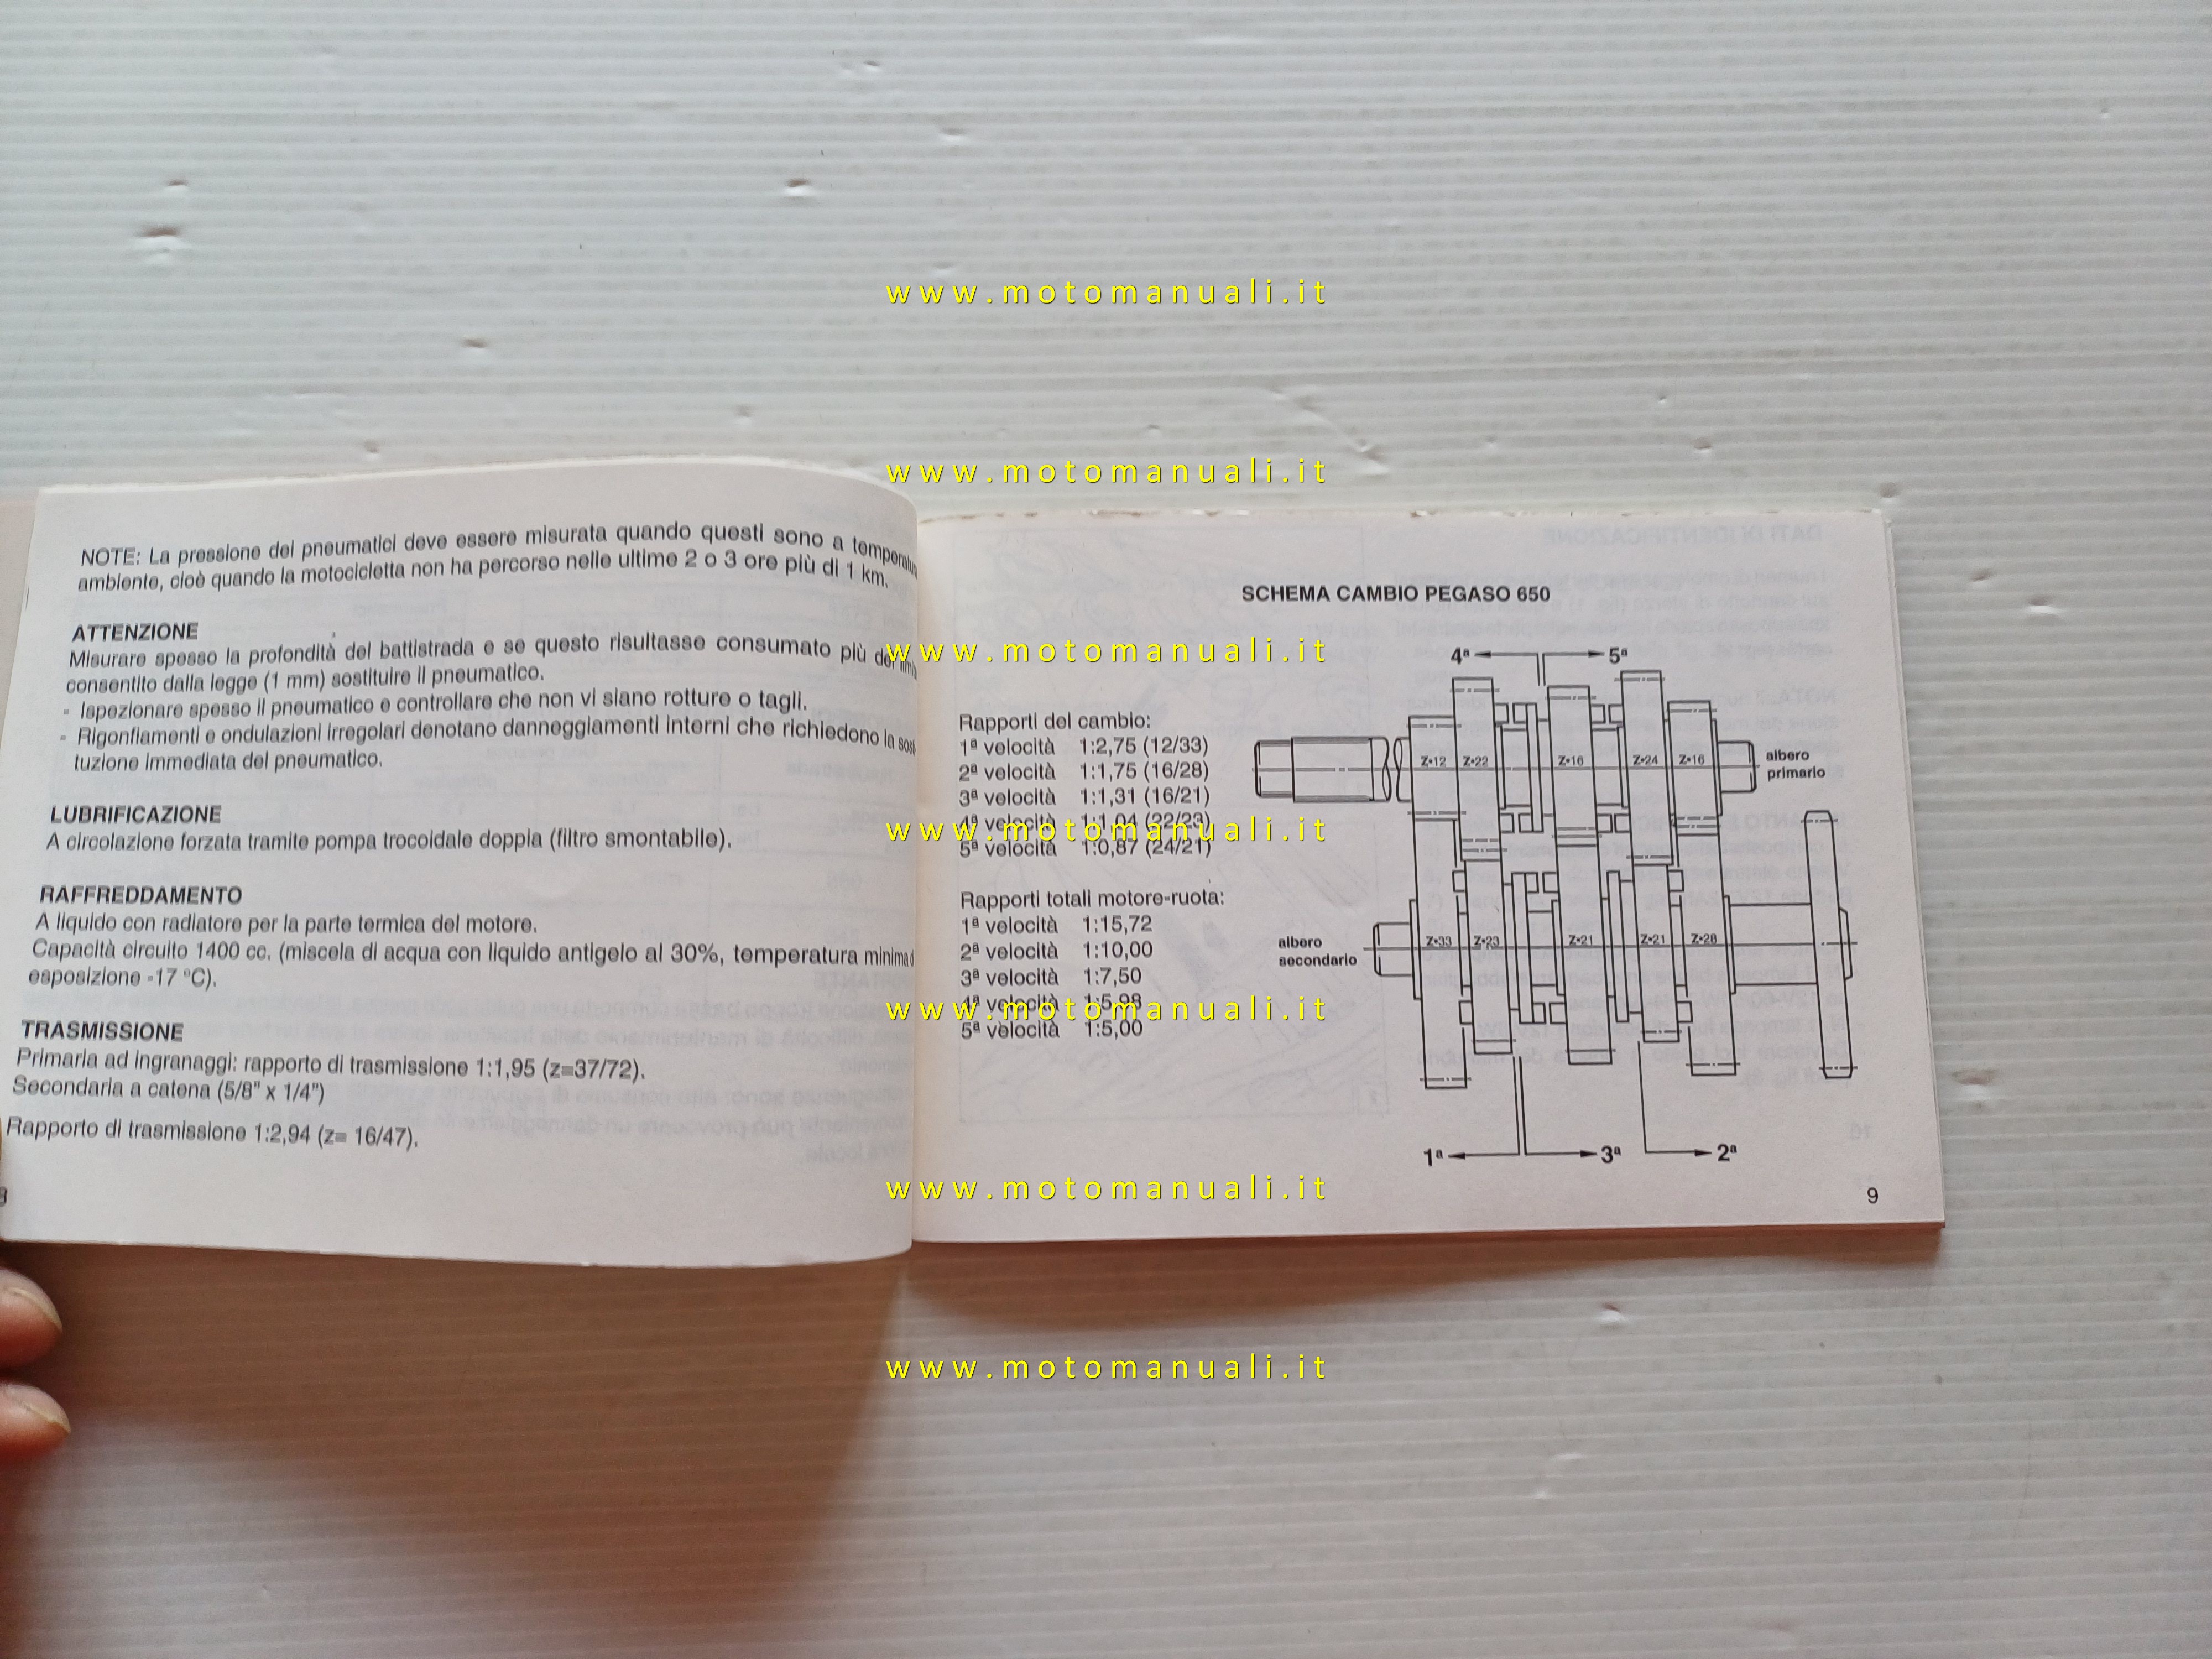 NOTE: La pressione dei pneumatici deve essere misurata quando questi sono a
ambiente, cioè quando la motocicletta non ha percorso nelle ultime 2 o 3 ore più di 1 km.
ATTENZIONE
Misurare spesso la profondità del battistrada e se questo risultasse consumato più del
consentito dalla legge (1 mm) sostituire il pneumatico.
- Ispezionare spesso il pneumatico e controllare che non vi siano rotture o tagli.
- Rigonfiamenti e ondulazioni irregolari denotano danneggiamenti interni che richiedono la sos
tuzione immediata del pneumatico.
LUBRIFICAZIONE
A circolazione forzata tramite pompa trocoidale doppia (filtro smontabile).
RAFFREDDAMENTO
A liquido con radiatore per la parte termica del motore.
Capacità circuito 1400 cc. (miscela di acqua con liquido antigelo al 30%, temperatura minima d
esposizione -17 ºC).
TRASMISSIONE
Primaria ad ingranaggi: rapporto di trasmissione 1:1,95 (z=37/72).
Secondaria a catena (5/8" x 1/4")
Rapporto di trasmissione 1:2,94 (z= 16/47).
SCHEMA CAMBIO PEGASO 650
Rapporti del cambio:
1ª velocità 1:2,75 (12/33)
2ª velocità 1:1,75 (16/28)
3ª velocità 1:1,31 (16/21)
4ª velocità 1:1,04 (22/23)
5ª velocità 1:0,87 (24/21)
Rapporti totali motore-ruota:
1ª velocità 1:15,72
2ª velocità 1:10,00
3ª velocità 1:7,50
4ª velocità 1:5,98
5ª velocità 1:5,00
4ª 5ª
Z•12 Z•22 Z•16 Z•24 Z•16
albero
primario
albero
secondario
Z•33 Z•23 Z•21 Z•21 Z•28
1ª 3ª 2ª
9
www.motomanuali.it
www.motomanuali.it
www.motomanuali.it
www.motomanuali.it
www.motomanuali.it
www.motomanuali.it
www.motomanuali.it